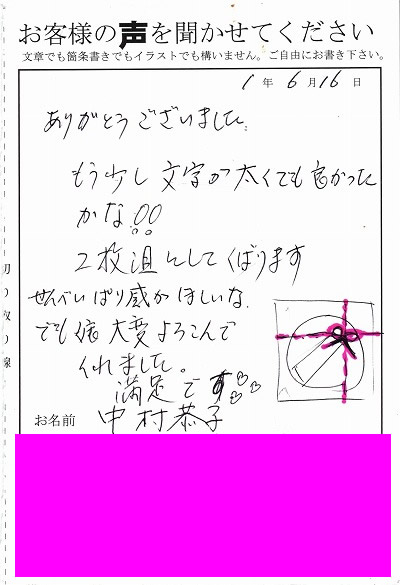 お客様の声を聞かせてください
文章でも箇条書きでもイラストでも構いません。ご自由にお書き下さい。
1年6月16日
ありがとうございました。
もう少し文字が太くても良かった
かな!!
2枚組としてくばります
せんべいぱり感がほしいな、
でも 大変よろこんで
くれました。
満足です
お名前 中村恭子
切り取り線